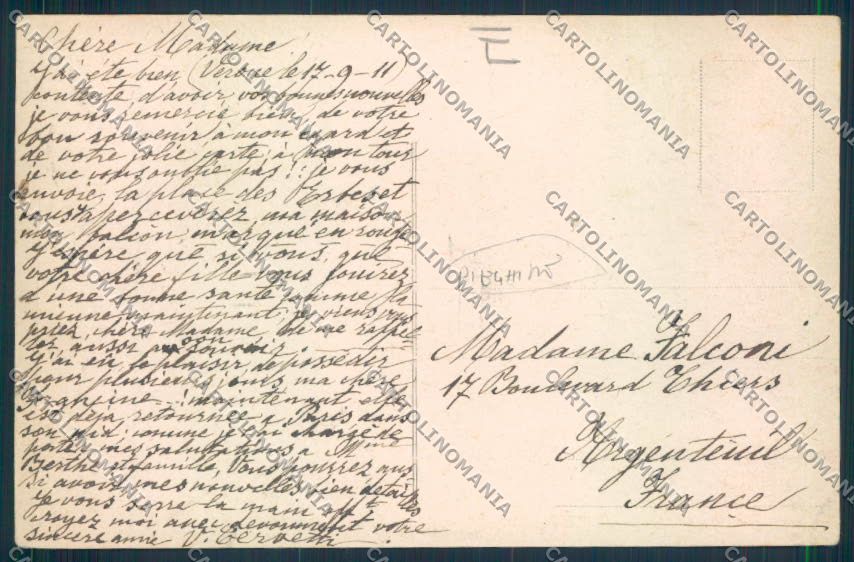 Chère Madame
J'ai été bien (Verone le 17-9-11)
contente d'avoir vos bonnes nouvelles
je vous remercie bien de votre
bon souvenir à mon égard et
de votre jolie carte, à mon tour
je ne vous oublie pas!! je vous
envoie, la place des Erbes et
vous apercevérez, ma maison
mon balcon, marqué en rouge
J'éspère que si vous, que
votre chère fille vous jouirez
d'une bonne santé comme la
mienne maintenant, je viens vous
prier, chère Madame de me rappel
ler aussi au bon souvenir
J'ai eu le plaisir de posséder
pour plusieurs jours ma chère
maintenant elle
est déjà retournée a Paris dans
son nid, comme je l'ai chargé de
porter mes salutations a Mme
Berthe et famille, Vous pourrez aussi
si avoir mes nouvelles bien detaillés
Je vous serre la main afft
croyez moi avec devoument votre
sincère amie V. Cervetti
Madame Falconi
17 Boulevard Thiers
Argenteuil
France
CARTOLINOMANIA